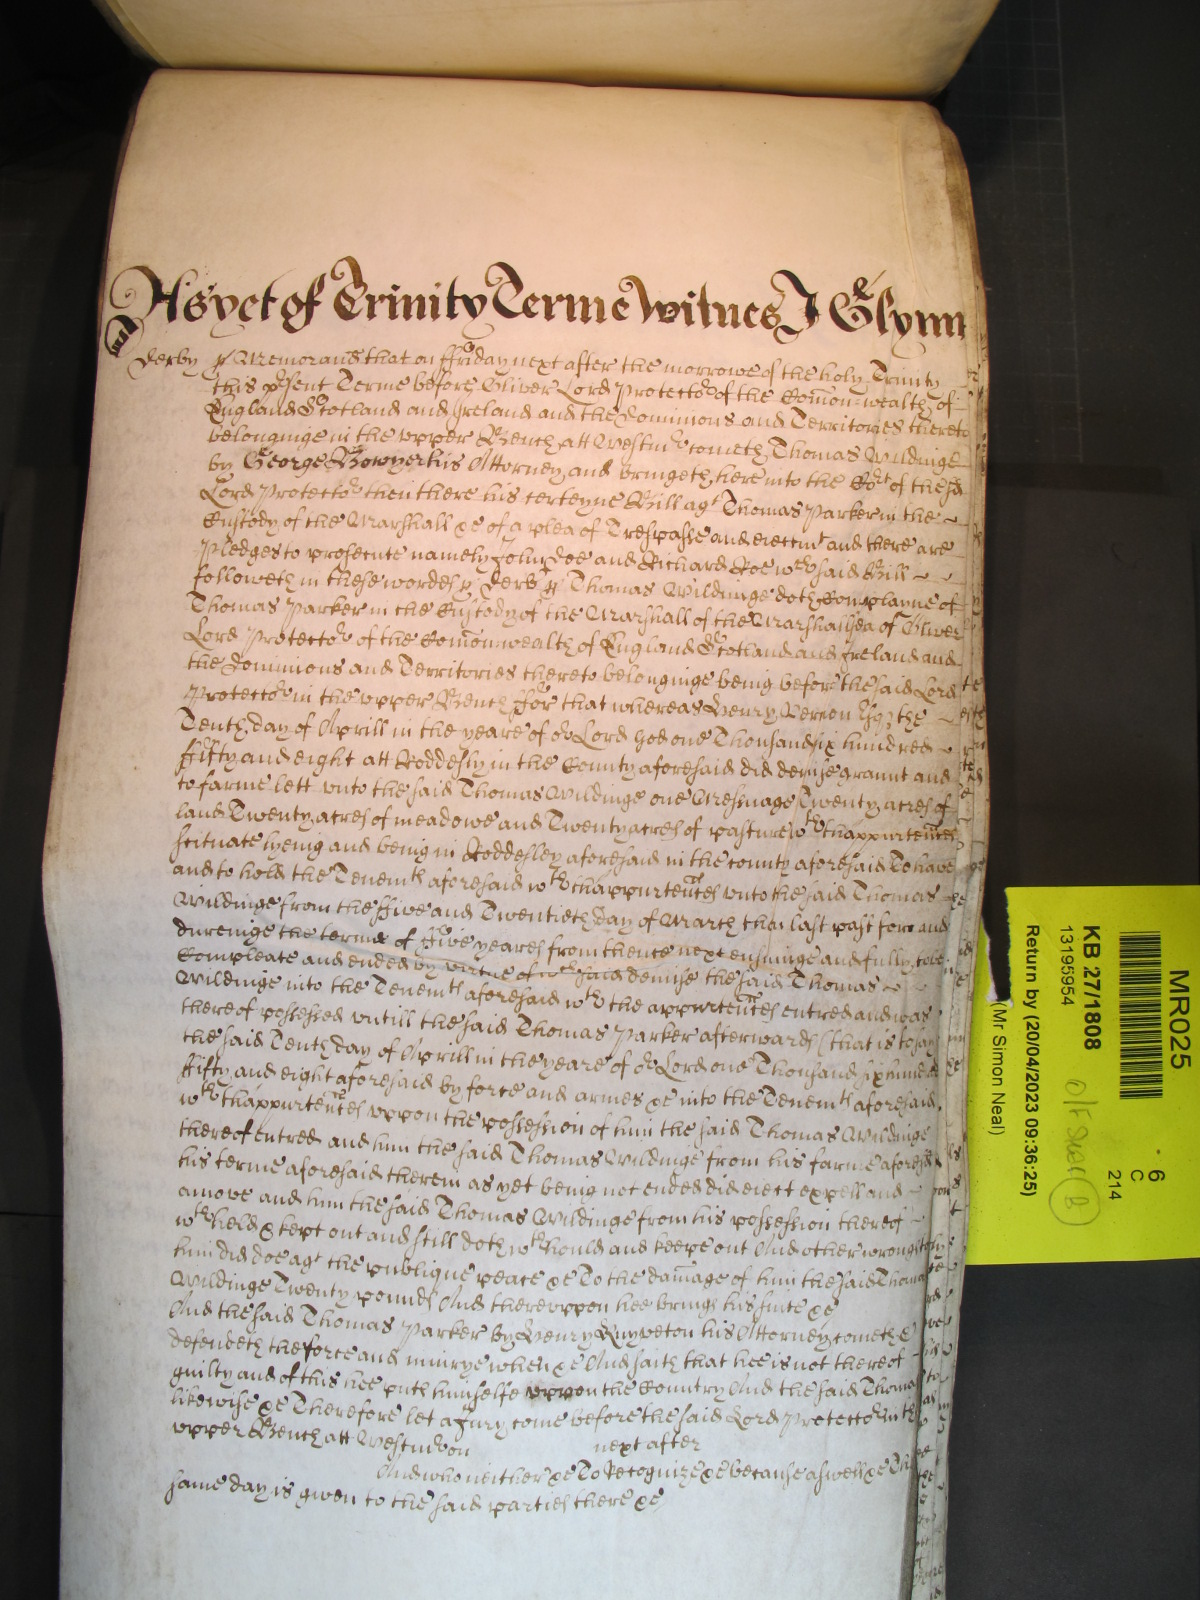 As yet of Trinity Terme Witnes J Glynn
Derby ss Memorand that on ffriday next after the morrowe of the holy Trinity
this pesent Terme before Oliver Lord Protector of the Comon=wealth of
England Scotland and Ireland and the Dominions and Territories thereto
belonginge in the upper Bench att Westmr cometh Thomas Wildinge
by George Bowyer his Attorney and bringeth here into the Cort of the sd
Lord Protector then there his certeyne Bill agt Thomas Parker in the
Custody of the Marshall &c of a plea of Trespasse and eiectmt and there are
Pledges to prosecute namely John Doe and Richard Roe wch said Bill
followeth in these wordes ss Derb ss Thomas Wildinge doth Complayne of
Thomas Parker in the Custody of the Marshall of the Marshallsea of Oliver
Lord Protector of the Comonwealth of England Scotland and Ireland and
the Dominions and Territories thereto belonginge being before the said Lord
Protector in the upper Bench ffor that whereas Henry Vernon Esqr the
Tenth day of Aprill in the yeare of or Lord God one Thousand six hundred
ffifty and eight att Roddesly in the County aforesaid did demise graunt and
to farme lett unto the said Thomas Wildinge one Messuage Twenty acres of
land Twenty acres of meadowe and Twenty acres of pasture wth thappurtences
scituate lyeing and being in Roddesley aforesaid in the county aforesaid To have
and to hold the Tenemts aforesaid wth thappurtences unto the said Thomas
Wildinge from the ffive and Twentieth day of March then last past for and
dureinge the terme of ffive yeares from thence next ensuinge and fully to be
Compleate and ended by virtue of wch said demise the said Thomas
Wildinge into the Tenemts aforesaid wth the appurtences entred and was
thereof possessed untill the said Thomas Parker afterwards (that is to say)
the said Tenth day of Aprill in the yeare of or Lord one Thousand six hundred
ffifty and eight aforesaid by force and armes &c into the Tenemts aforesaid
wth thappurtences uppon the possession of him the said Thomas Wildinge
thereof entred and him the said Thomas Wildinge from his farme aforesd
his terme aforesaid therein as yet being not ended did eiect expell and
amove and him the said Thomas Wildinge from his possession thereof
wthheld & kept out and still doth wthhould and keepe out And other wrongs to
him did doe agt the publique peace &c To the damage of him the said Thomas
Wildinge Twenty pounds And thereuppon hee brings his suite &c
And the said Thomas Parker by Henry Knyveton his Attorney cometh &
defendeth the force and iniurye when &c And saith that hee is not thereof
guilty and of this hee puth himselfe uppon the Country And the said Thomas
likewise &c Therefore let a Jury come before the said Lord Protector in the
upper Bench att Westmr on next after
And who neither &c To Recognize &c because aswell &c The
same day is given to the said parties there &c
MR025
KB 27/1808
13195954
6
C
214
Return by (20/04/2023 09:36:25)
(Mr Simon Neal)